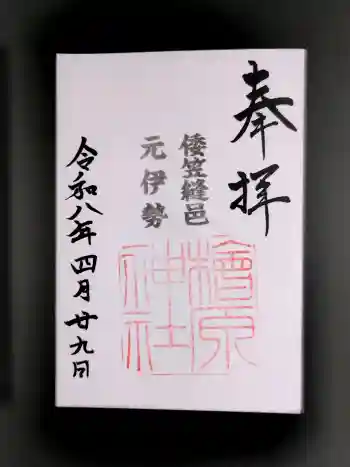 奉拝
倭笠縫邑
元伊勢
檜原
神社
令和八年四月廿九日